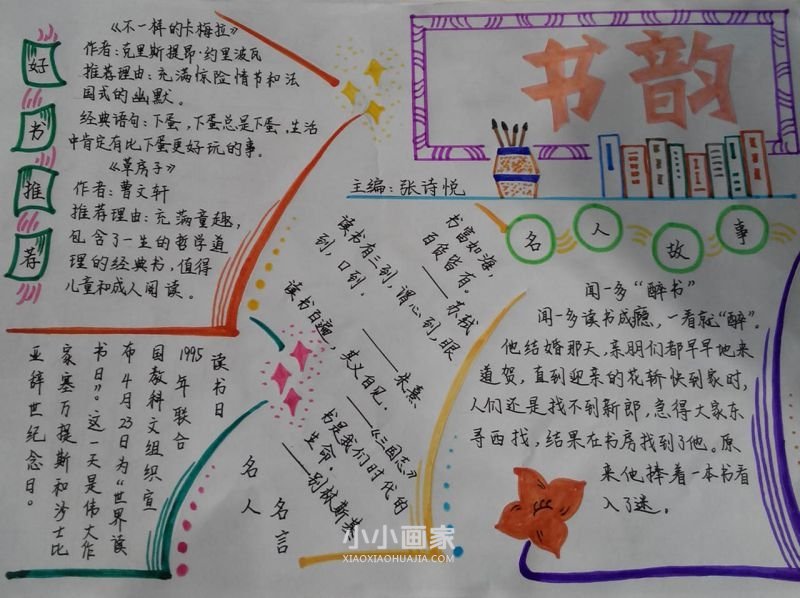 书韵
主编：张诗悦
好书推荐
《不一样的卡梅拉》
作者：克里斯提昂·约里波瓦
推荐理由：充满惊险情节和法
国式的幽默。
经典语句：下蛋，下蛋总是下蛋，生活
中肯定有比下蛋更好玩的事。
《草房子》
作者：曹文轩
推荐理由：充满童趣，
包含了一生的哲学道
理的经典书，值得
儿童和成人阅读。
读书日
1995年联合
国教科文组织宣
布4月23日为“世界读
书日”。这一天是伟大作
家塞万提斯和沙士比
亚辞世纪念日。
名人
名言
书富如海，
百货皆有。
——苏轼
读书有三到，谓心到，眼
到，口到。
——朱熹
读书百遍，其义自见。
——《三国志》
书是我们时代的
生命。
——别林斯基
名人故事
闻一多“醉书”
闻一多读书成瘾，一看就“醉”。
他结婚那天，亲朋们都早早地来
道贺，直到迎亲的花轿快到家时，
人们还是找不到新郎，急得大家东
寻西找，结果在书房找到了他。原
来他捧着一本书看
入了迷。
小小画家
XIAOXIAOHUAJIA.COM